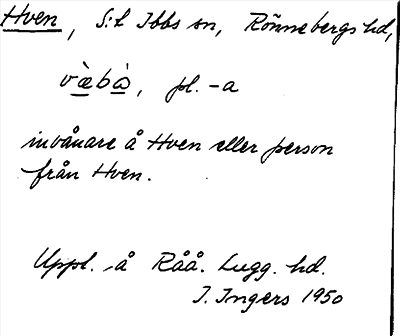 Hven, S:t Ibbs sn, Rönnebergs hd,
væ̀bò̱, pl. -a
invånare å Hven eller person
från Hven.
Uppl. å Råå. Lugg. hd.
I. Ingers 1950